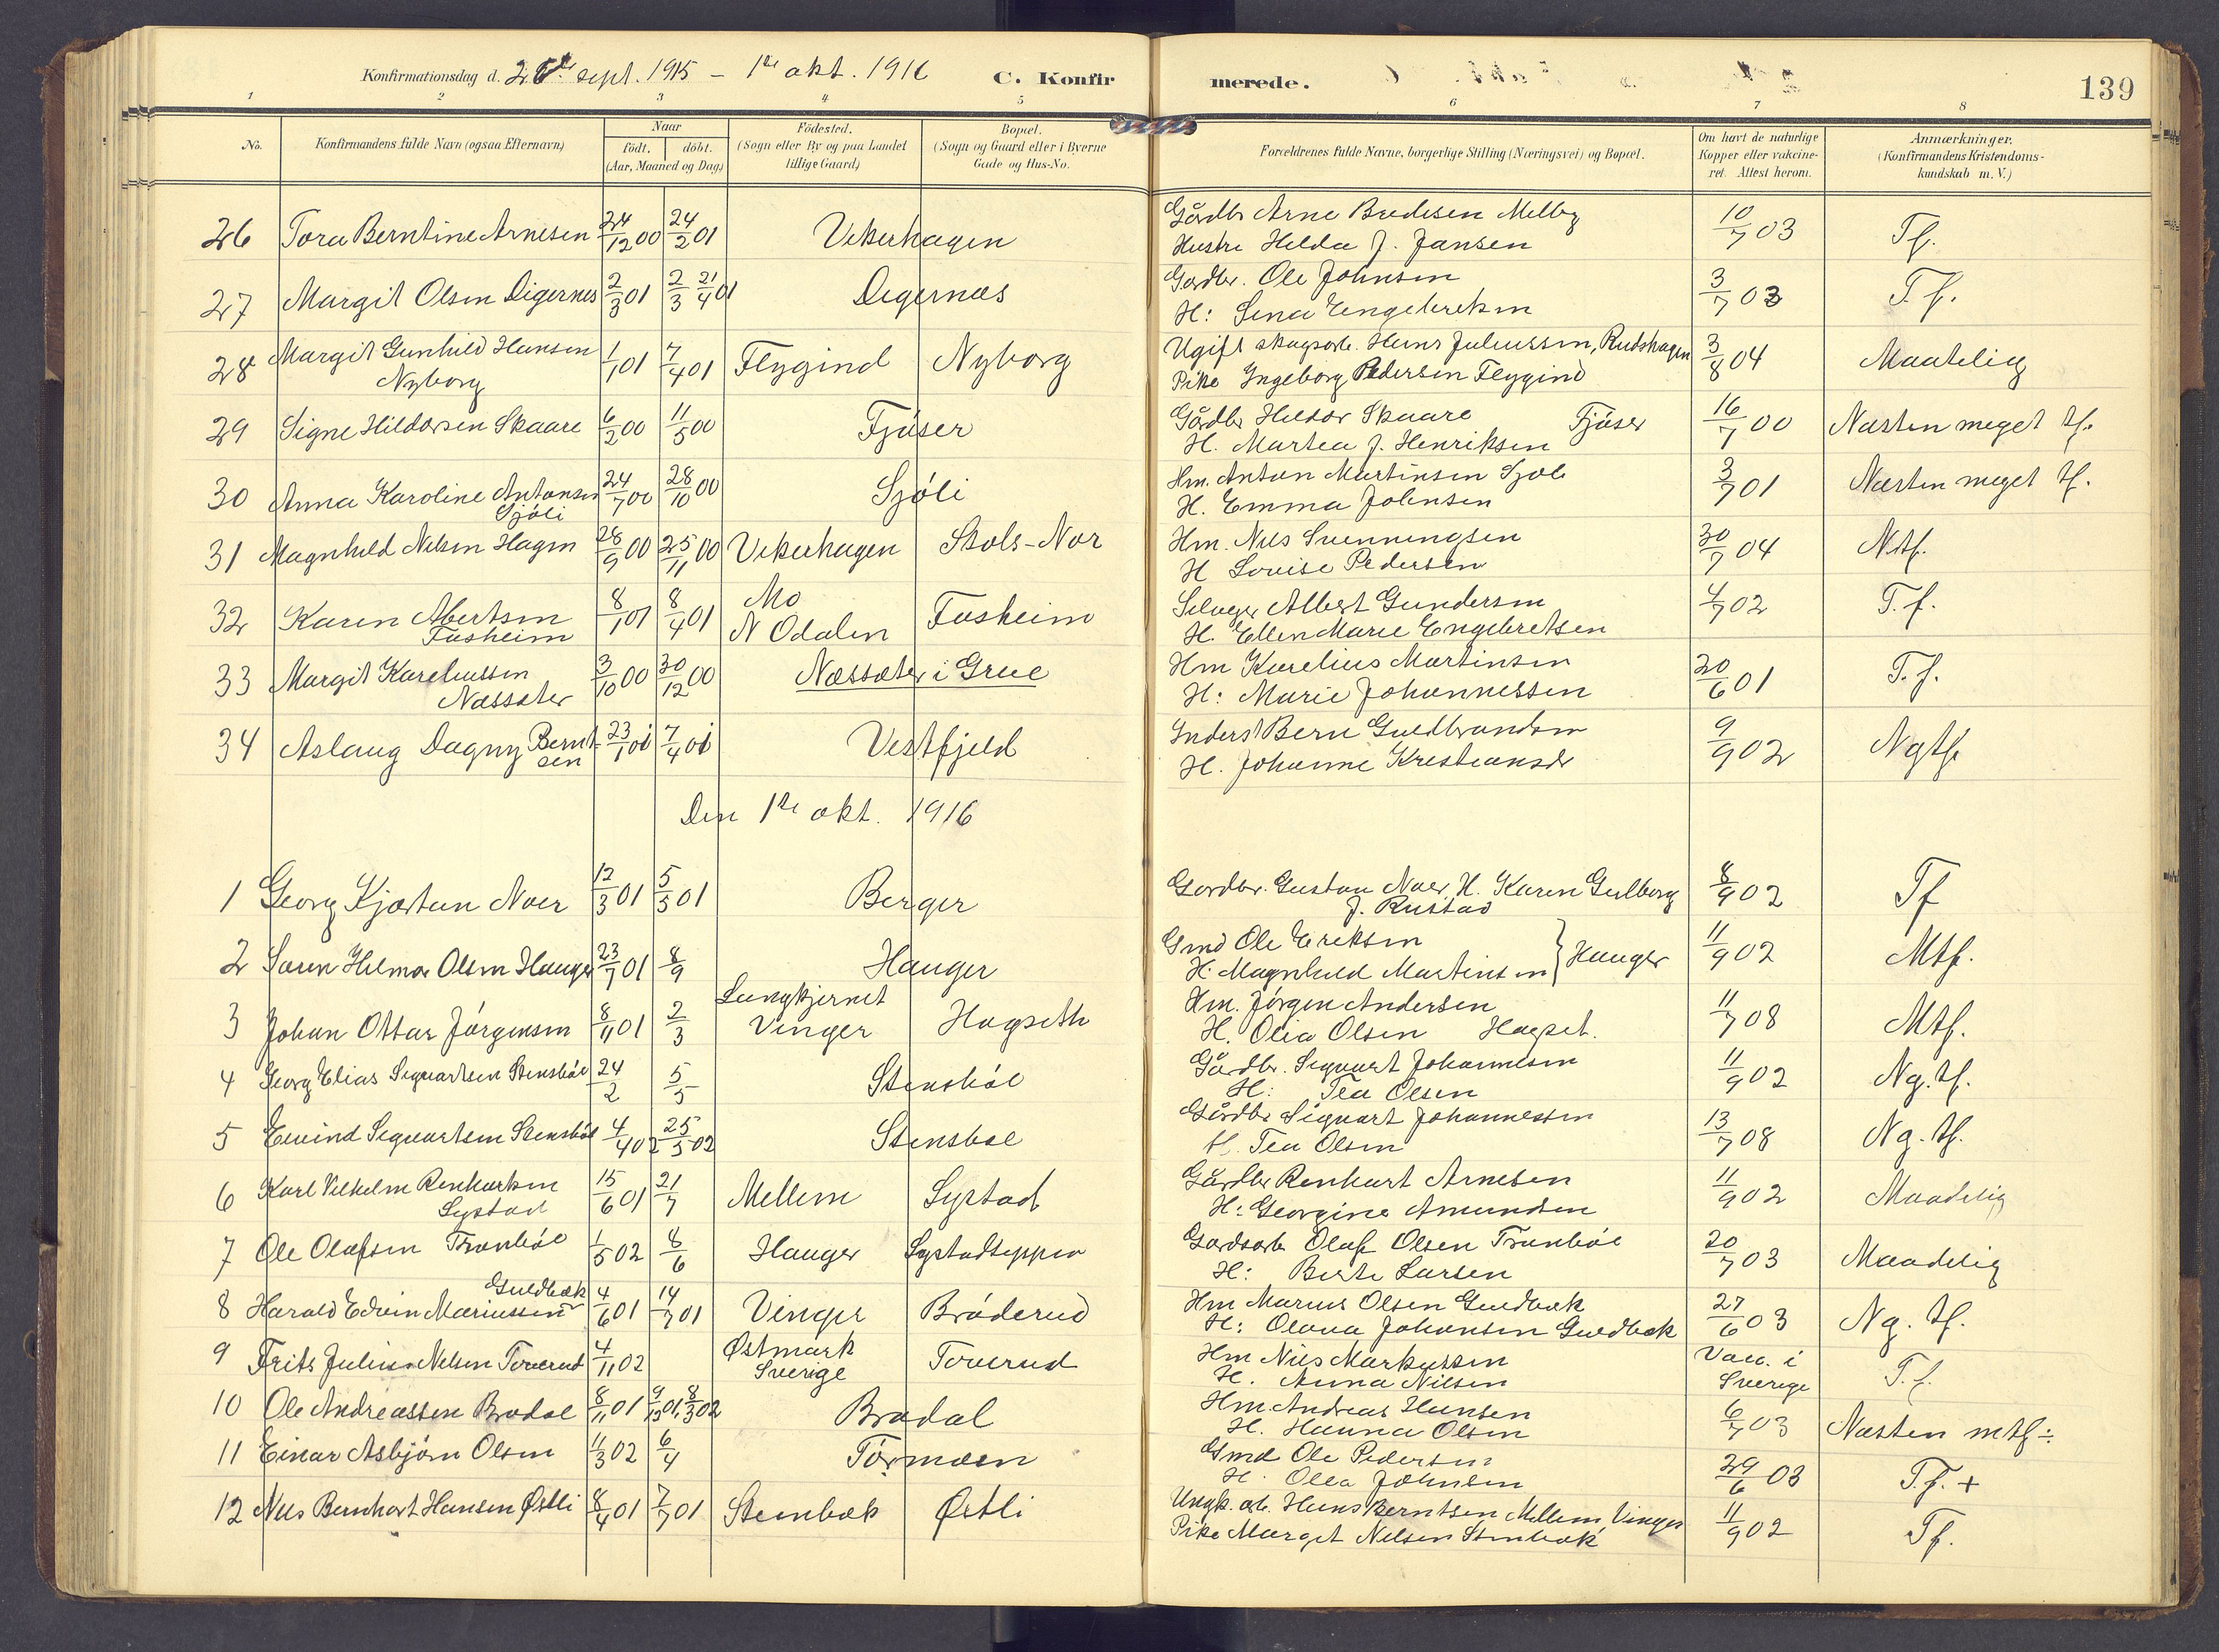 Konfirmationsdag d. 26de sept. 1915 – 1ste okt. 1916 C. Konfir
merede. 139
1 2 3 4 5 6 7 8
No.
Konfirmandens fulde Navn (ogsaa Efternavn)
Naar
født. døbt.
(Aar, Maaned og Dag)
Fødested.
(Sogn eller By og paa Landet
tillige Gaard)
Bopæl.
(Sogn og Gaard eller i Byerne
Gade og Hus-No.
Forældrenes fulde Navne, borgerlige Stilling (Næringsvei) og Bopæl.
Om havt de naturlige
Kopper eller vakcine-
ret. Attest herom.
Anmærkninger.
(Konfirmandens Kristendoms-
kundskab m. V.)
26 Tora Berntine Arnesen 24/12 00 24/2 01 Vikerhagen Gårdbr Arne Bredesen Melby 10/7 03 Tf.
Hustru Hilda J. Jansen
27 Margit Olsen Digernes 2/3 01 2/3 21/4 01 Digernæs Gårdbr. Ole Johnsen 3/7 03 T.f.
H: Lina Engebretsen
28 Margit Gunhild Hansen 1/1 01 7/4 01 Flygind Nyborg Ugift skogsarb. Hans Juliussen, Rudshagen 3/8 04 Maatelig
Nyborg Pike Ingeborg Pedersen Flygind
29 Signe Hildorsen Skaare 6/2 00 11/5 00 Fjöser Gårdbr Heldor Skaare Fjöser 16/7 00 Næsten meget tf.
H. Martea J. Henriksen
30 Anna Karoline Antonsen 24/7 00 28/10 00 Sjöli Hm. Anton Martinsen Sjöli 3/7 01 Næsten meget tf.
Sjöli H. Emma Johnsen
31 Magnhild Nilsen Hagen 28/9 00 25/11 00 Vikerhagen Skols-Nor Hm. Nils Svenningsen 30/7 04 Ntf.
H Lovise Pedersen
32 Karen Abertsen 8/1 01 8/4 01 Mo Fosheim Selveger Albert Gundersen 4/7 02 T.f.
Fosheim N Odalen H. Ellen Marie Engebretsen
33 Margit Kareliussen 3/10 00 30/12 00 Næssæter i Grue Hm Karelius Martinsen 20/6 01 T.f.
Næssæter H: Marie Johannessen
34 Aslaug Dagny Bernt- 23/1 01 7/4 01 Vestfjeld Inderst Bern Guldbrandsen 9/9 02 Ngtf
sen H. Johanne Kristiansdr
Den 1ste okt. 1916
1 Georg Kjartan Noer 12/3 01 5/5 01 Berger Gårdbr. Gustav Noer, H. Karen Gulborg 8/9 02 Tf
J. Rustad
2 Søren Hilmar Olsen Hauger 23/7 01 8/9 Hauger Gmd Ole Eriksen } Hauger 11/9 02 Mtf.
H. Magnhild Martinsen
3 Johan Ottar Jörgensen 8/11 01 2/3 Lungkjernet Hagseth Hm. Jörgen Andersen 11/7 08 Mtf.
Vinger H. Olia Olsen Hagset.
4 Georg Elias Sigvartsen Stensböl 24/2 5/5 Stensböl Gårdbr. Sigvart Johannesen 11/9 02 Ng. tf.
H: Tea Olsen
5 Eivind Sigvartsen Stensböl 4/4 02 25/5 02 Stensböl Gårdbr Sigvart Johannessen 13/7 08 Ng. tf.
H. Tea Olsen
6 Karl Vilhelm Renhartsen 15/6 01 21/7 Mellem Systad Gårdbr Renhart Arnesen 11/9 02 Maadelig
Systad H: Georgine Amundsen
7 Ole Olafsen Tronböl 1/5 02 8/6 Hauger Systadseppen Gårdsarb Olaf Olsen Tronböl 20/7 03 Maadelig
H: Berte Larsen
8 Harald Edvin Mariussen Guldbæk 4/6 01 14/7 01 Vinger Bröderud Hm Marius Olsen Guldbæk 27/6 03 Ng. tf.
H: Olava Johansen Guldbæk
9 Frits Julius Nilsen Torerud 4/11 02 Østmark Torerud Hm Nils Markussen Vacc. i T.f.
Sverige H. Anna Nilsen Sverige
10 Ole Andreassen Brodal 8/11 01 9/12 01, 8/3 02 Brodal Hm. Andreas Hansen 6/7 03 Næsten mtf÷
H. Hanna Olsen
11 Einar Asbjörn Olsen 11/3 02 6/4 Tørmoen Gmd Ole Pedersen 29/6 03 T.f. +
H. Olea Johnsen
12 Nils Bernhart Hansen Østli 8/4 01 7/7 01 Stembæk Østli Ungk. arb. Hans Berntsen Mellem, Vinger 11/9 02 Tf.
Pike Margit Nilsen Stenbæk